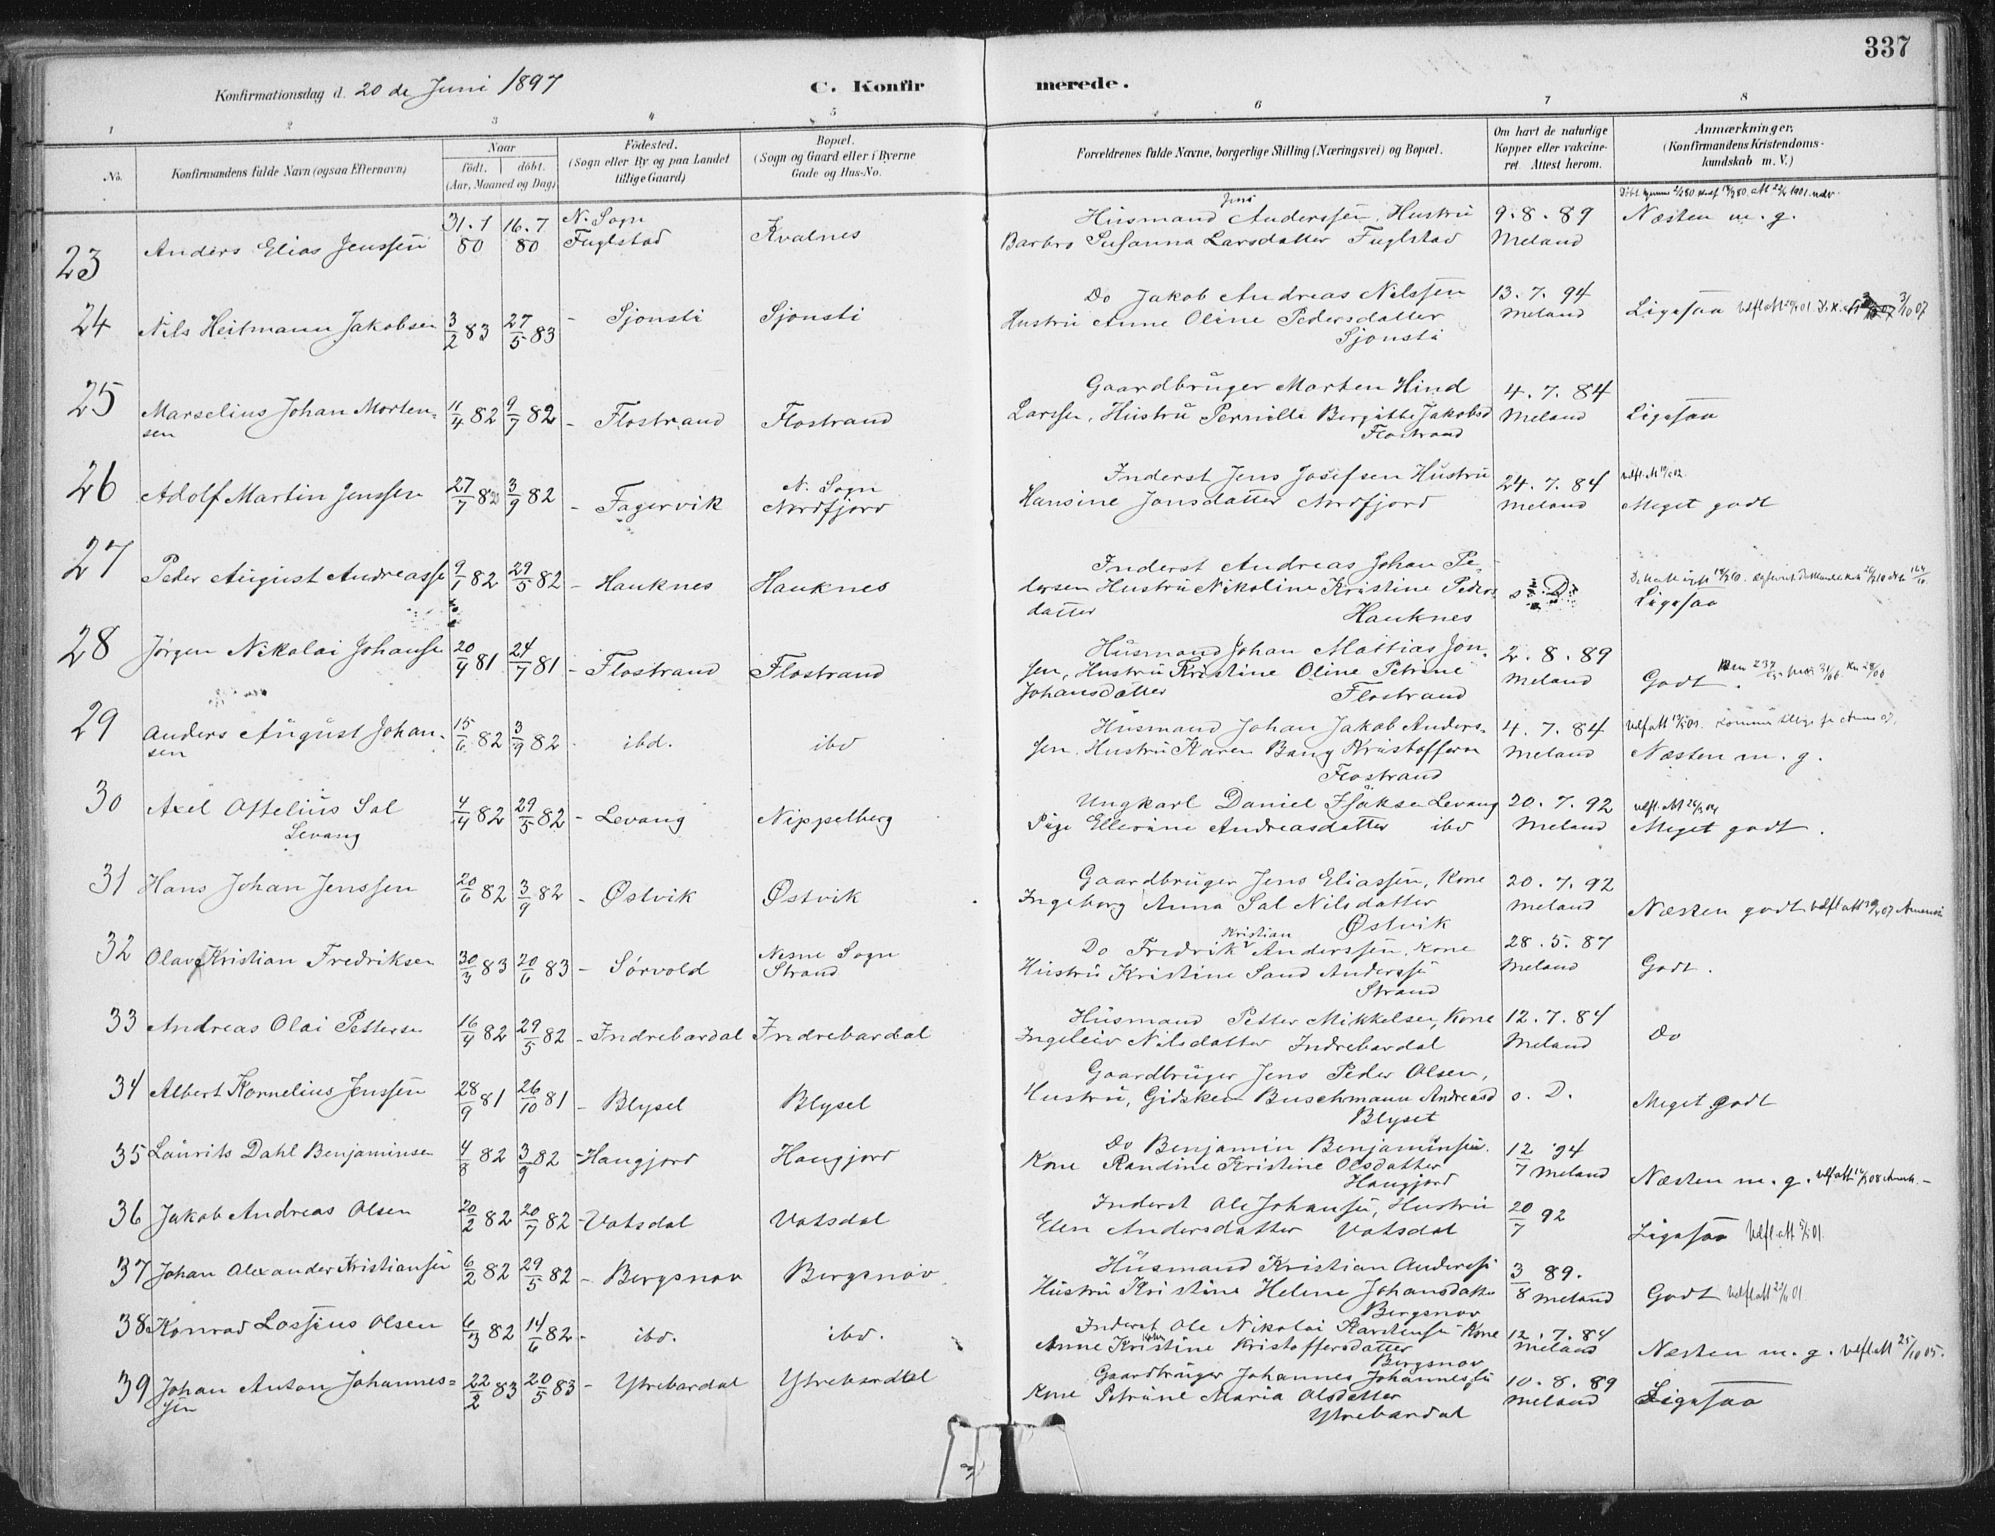 337
Konfirmationsdag d. 20 de Juni 1897 C. Konfirmerede.
1 2 3 4 5 6 7 8
No. Konfirmandens fulde Navn (ogsaa Efternavn) Naar født. døbt. (Aar, Maaned og Dag) Fødested. (Sogn eller By og paa Landet tillige Gaard) Bopæl. (Sogn og Gaard eller i Byerne Gade og Hus-No. Forældrenes fulde Navne, borgerlige Stilling (Næringsvei) og Bopæl. Om havt de naturlige Kopper eller vaccineret. Attest herom. Anmærkninger. (Konfirmandens Kristendomskundskab m. V.)
23 Anders Elias Jenssen 31.1 80 16.7 80 N. Sogn Fuglstad Kvalnes Husmand Jens Anderssen, Hustru 9.8.89 Næsten m. g.
Barbro Susanna Larsdatter Fuglstad Meland
24 Nils Heitmann Jakobsen 3/2 83 27/5 83 - Sjonsti Sjonsti Do Jakob Andreas Nilssen 13.7.94 Ligesaa
Hustru Anne Oline Pedersdatter Meland
Sjonsti
25 Marselius Johan Morten- 11/4 82 9/7 82 - Flostrand Flostrand Gaardbruger Morten Hind 4.7.84
sen Larssen, Hustru Pernille Bergitte Jakobsd Meland Ligesaa
Flostrand
26 Adolf Martin Jenssen 27/7 82 3/9 82 - Fagervik N. Sogn Nordfjord Inderst Jens Josefsen Hustru 24.7.84
Hansine Jonsdatter Nordfjord Meland Meget godt
27 Peder August Andreasse 9/1 82 29/5 82 - Hauknes Hauknes Inderst Andreas Johan Pe-
dersen Hustru Nikoline Kristine Peders s. D. Ligesaa
datter Hauknes
28 Jørgen Nikolai Johanse 20/4 81 24/7 81 - Flostrand Flostrand Husmand Johan Mattias Jon- 2.8.89
sen, Hustru Kristine Oline Petrine Meland Godt.
Johansdatter Flostrand
29 Anders August Johan- 15/6 82 3/9 82 - ibd. ibd Husmand Johan Jakob Anders- 4.7.84
sen sen. Hustru Karen Bang Kristoffersn Meland Næsten m. g.
Flostrand
30 Axel Ottelius Sal 4/4 82 29/5 82 - Levang Nippelberg Ungkarl Daniel Isakse Levang 20.7.92
Levang Pige Ellerine Andreasdatter ibd Meland Meget godt.
31 Hans Johan Jenssen 20/6 82 3/9 82 - Østvik Østvik Gaardbruger Jens Eliassen, Kone 20.7.92
Ingeborg Anna Sal Nilsdatter Meland Næsten godt
Østvik
32 Olav Kristian Fredriksen 30/3 83 20/6 83 - Sørvold Nesne Sogn Strand Do Fredrik Kristian Anderssen, Kone 28.5.87
Hustru Kristine Sand Anderssd Meland Godt.
Strand
33 Andreas Olai Petterse 16/4 82 29/5 82 - Indrebardal Indrebardal Husmand Petter Mikkelsen, Kone 12.7.84 Do
Ingeleiv Nilsdatter Indrebardal Meland
34 Albert Kornelius Jenssen 28/9 81 26/10 81 - Blysel Blysel Gaardbruger Jens Peder Olsen,
Hustru, Gidsken Buschmann Andreasd s. D. Meget godt
Blyset
35 Laurits Dahl Benjaminse 4/8 82 3/9 82 - Haugjord Haugjord Do Benjamin Benjaminsen. 12/7 94
Kone Randine Kristine Olsdatter Meland Næsten m. g.
Haugjord
36 Jakob Andreas Olsen 20/2 82 20/7 82 - Vatsdal Vatsdal Inderst Ole Johansen, Hustru 20/7 92
Elen Andersdatter Vatsdal Ligesaa
37 Johan Alexander Kristiansen 6/2 82 29/5 82 - Bergsnov Bergsnov Husmand Kristian Anderss 3/8 89.
Hustru Kristine Helene Johansdatte Meland Godt
Bergsnov
38 Konrad Lossius Olsen 6/3 82 14/6 82 - ibd. ibd. Inderst Ole Nikolai Karstensen Kone 12.7.84
Anne Kristine Kristoffersdatter Meland Næsten m. g.
Bergsnov
39 Johan Anton Johannes- 22/2 83 20/5 83 - Ytrebardal Ytrebardal Gaardbruger Johannes Johannessen 10.8.89
sen Kone Petrine Maria Olsdatter Meland Ligesaa
Ytrebardal